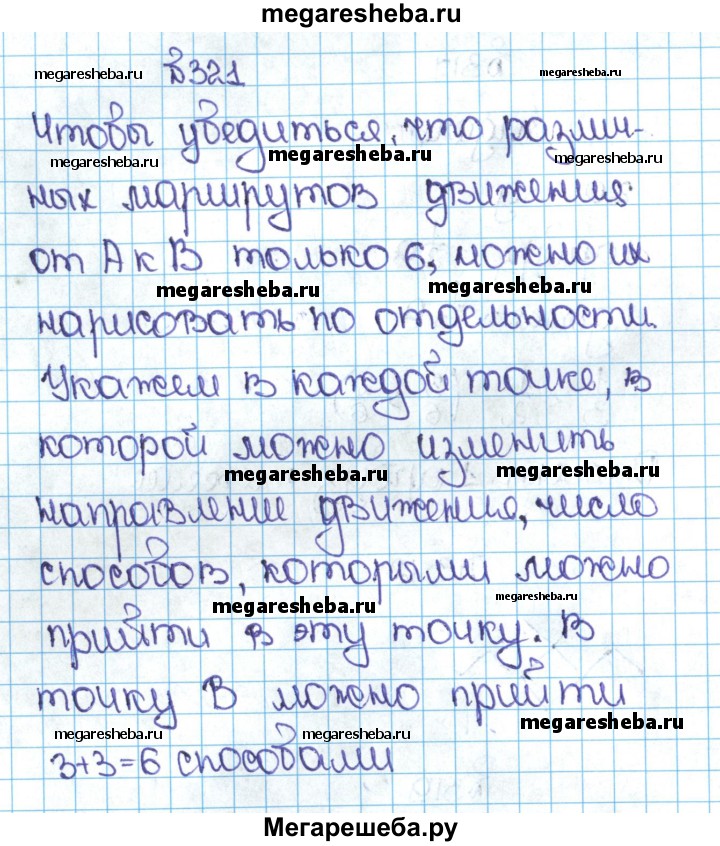 megaresheba.ru
№321
megaresheba.ru
megaresheba.ru
Чтобы убедиться, что различ-
megaresheba.ru
megaresheba.ru
megaresheba.ru
ных маршрутов движения
от А к В только 6, можно их
megaresheba.ru
megaresheba.ru
нарисовать по отдельности.
Укажем в каждой точке, в
которой можно изменить
megaresheba.ru
megaresheba.ru
направление движения, число
способов, которыми можно
megaresheba.ru
megaresheba.ru
прийти в эту точку. В
точку В можно прийти
megaresheba.ru
megaresheba.ru
megaresheba.ru
3+3=6 способами
Мегарешеба.ру